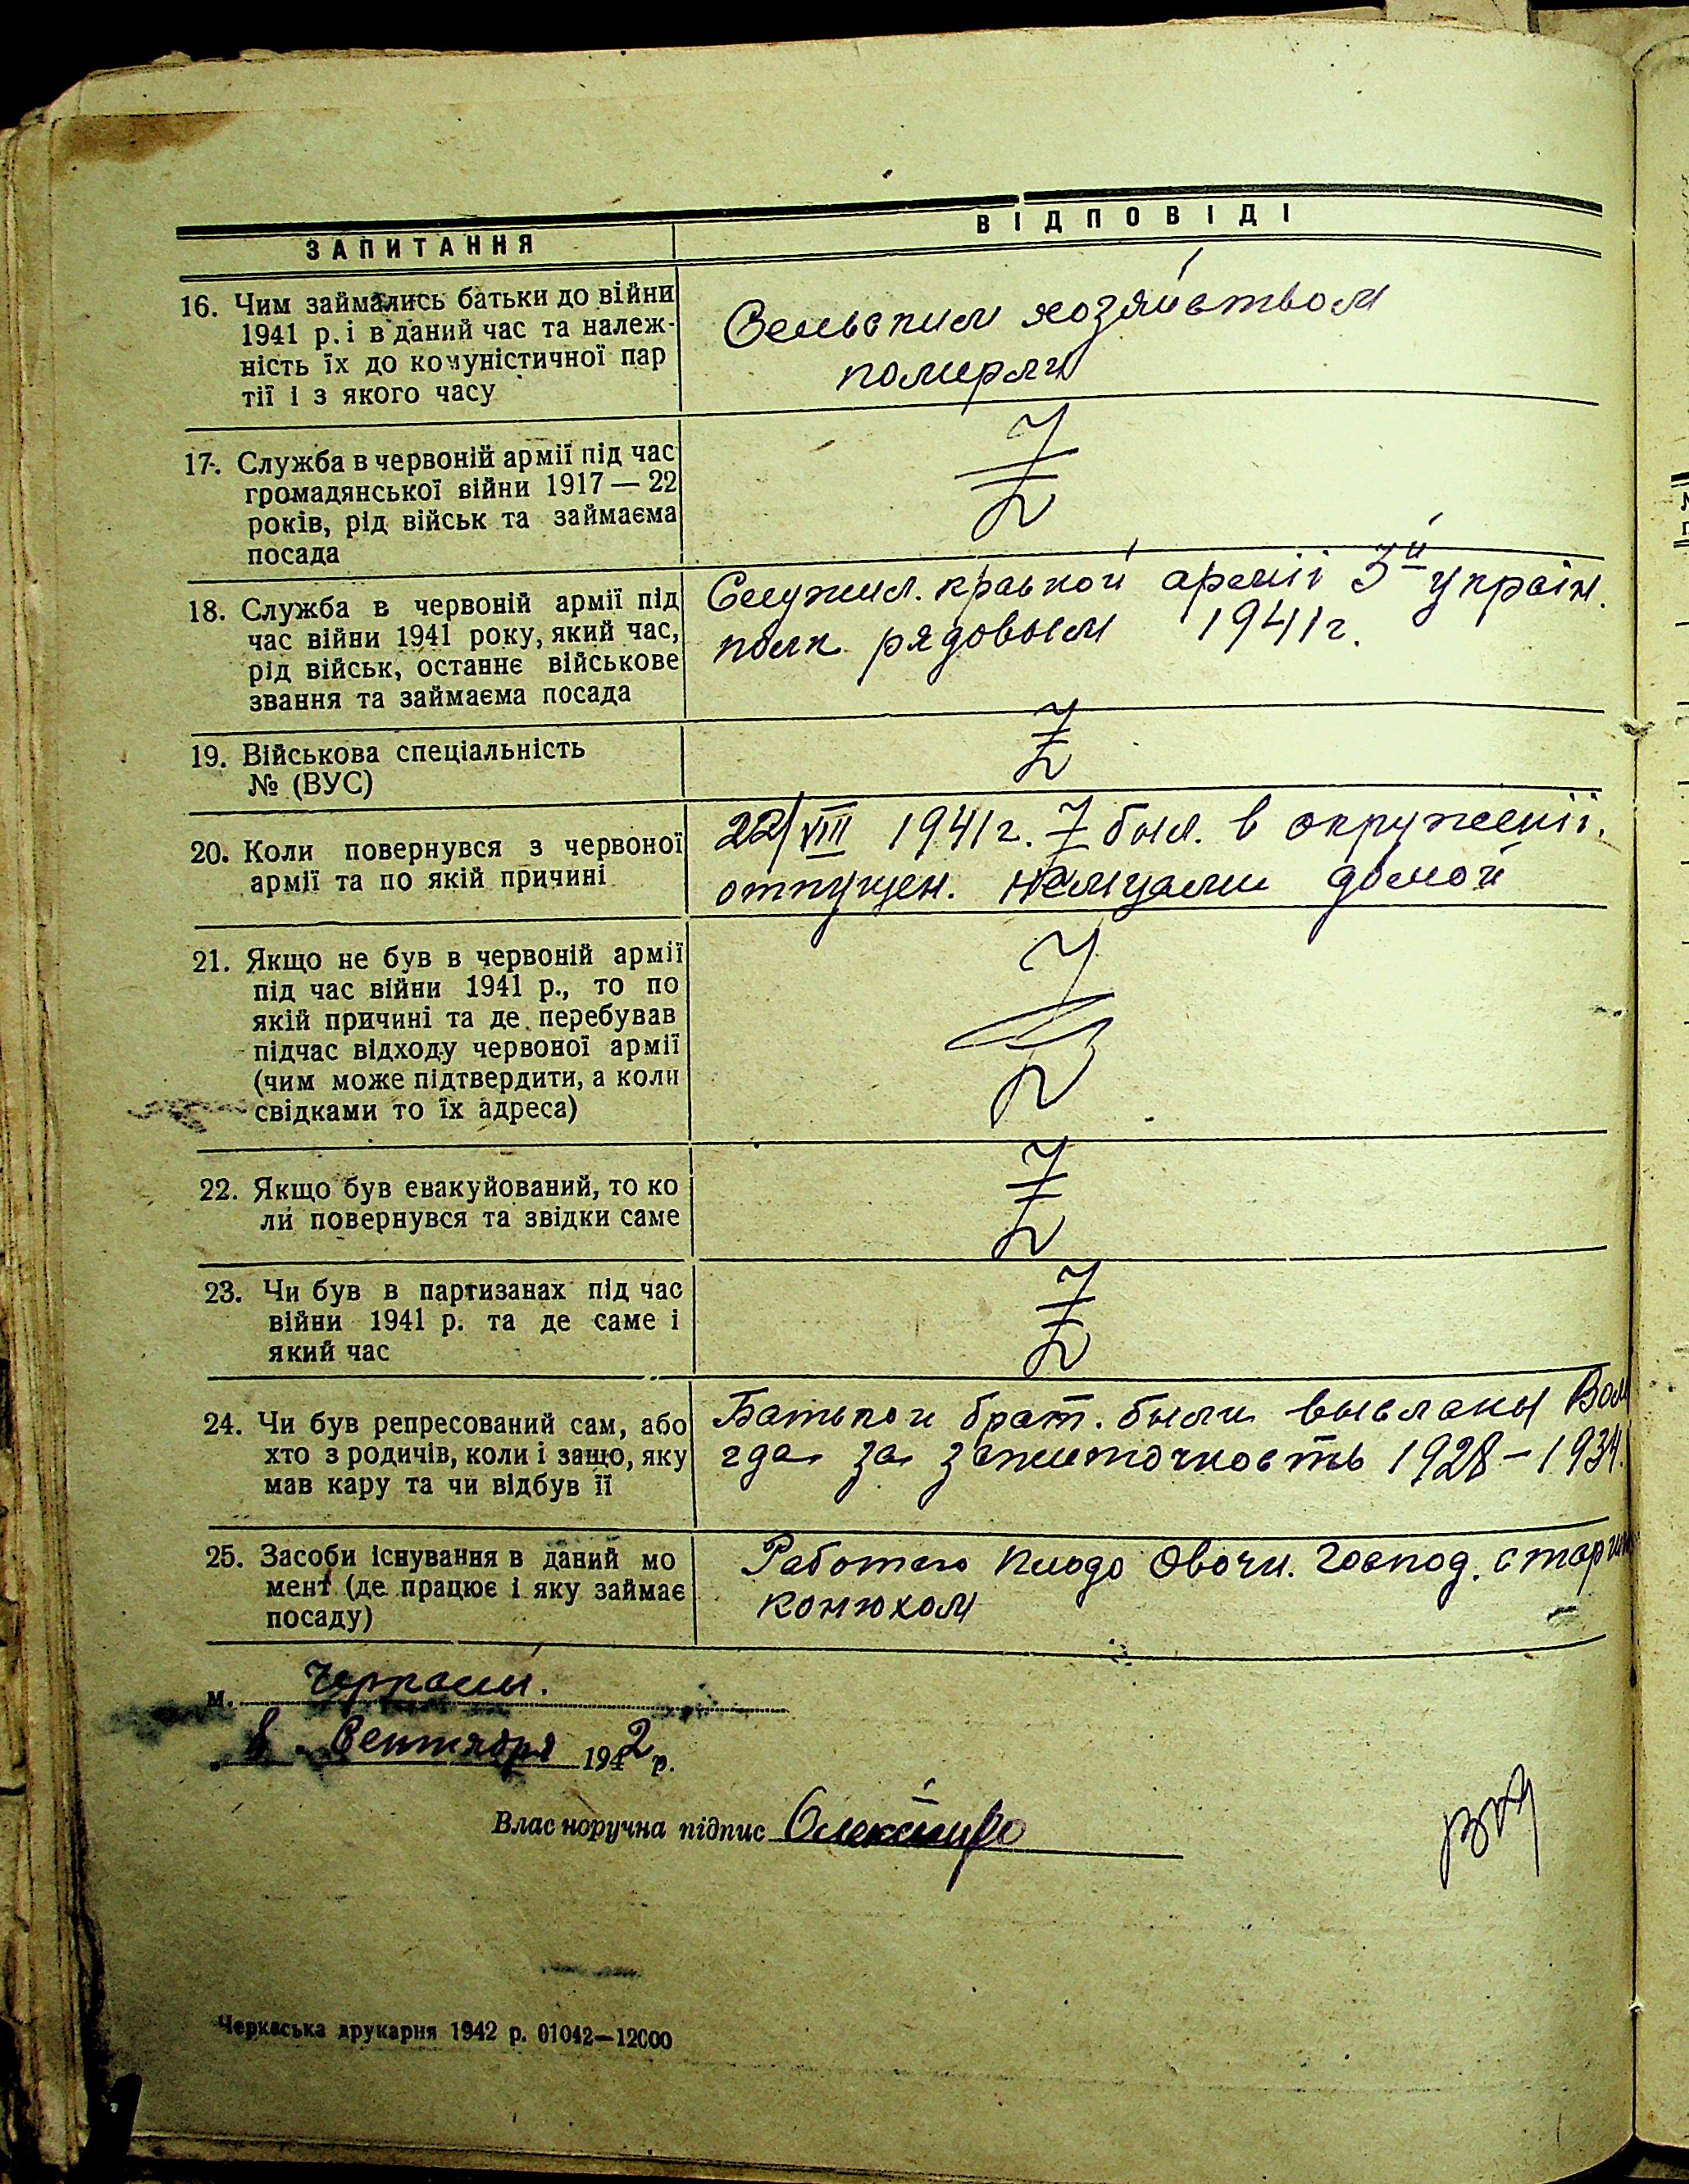 ЗАПИТАННЯ
ВІДПОВІДІ
16. Чим займались батьки до війни
1941 р. і в даний час та належ-
ність їх до комуністичної пар
тії і з якого часу
Сельским хозяйством
померли
17. Служба в червоній армії під час
громадянської війни 1917 — 22
років, рід військ та займаєма
посада
18. Служба в червоній армії під
час війни 1941 року, який час,
рід військ, останнє військове
звання та займаєма посада
Служил. краской армії 3й україн.
полк рядовым 1941г.
19. Військова спеціальність
№ (ВУС)
20. Коли повернувся з червоної
армії та по якій причині
22/VIII 1941г. был. в окружении.
отпущен. немцами домой
21. Якщо не був в червоній армії
під час війни 1941 р., то по
якій причині та де перебував
підчас відходу червоної армії
(чим може підтвердити, а коли
свідками то їх адреса)
22. Якщо був евакуйований, то ко
ли повернувся та звідки саме
23. Чи був в партизанах під час
війни 1941 р. та де саме і
який час
24. Чи був репресований сам, або
хто з родичів, коли і защо, яку
мав кару та чи відбув її
Батько и брат. были высланы Вол
гда за зажиточность 1928-1934.
25. Засоби існування в даний мо
мент (де працює і яку займає
посаду)
Работаю Плодо Овочн. Господ. старшим
конюхом
м. Черкассы.
8. Сентября 1942 р.
Власноручна підпис
Черкаська друкарня 1942 р. 01042—12000